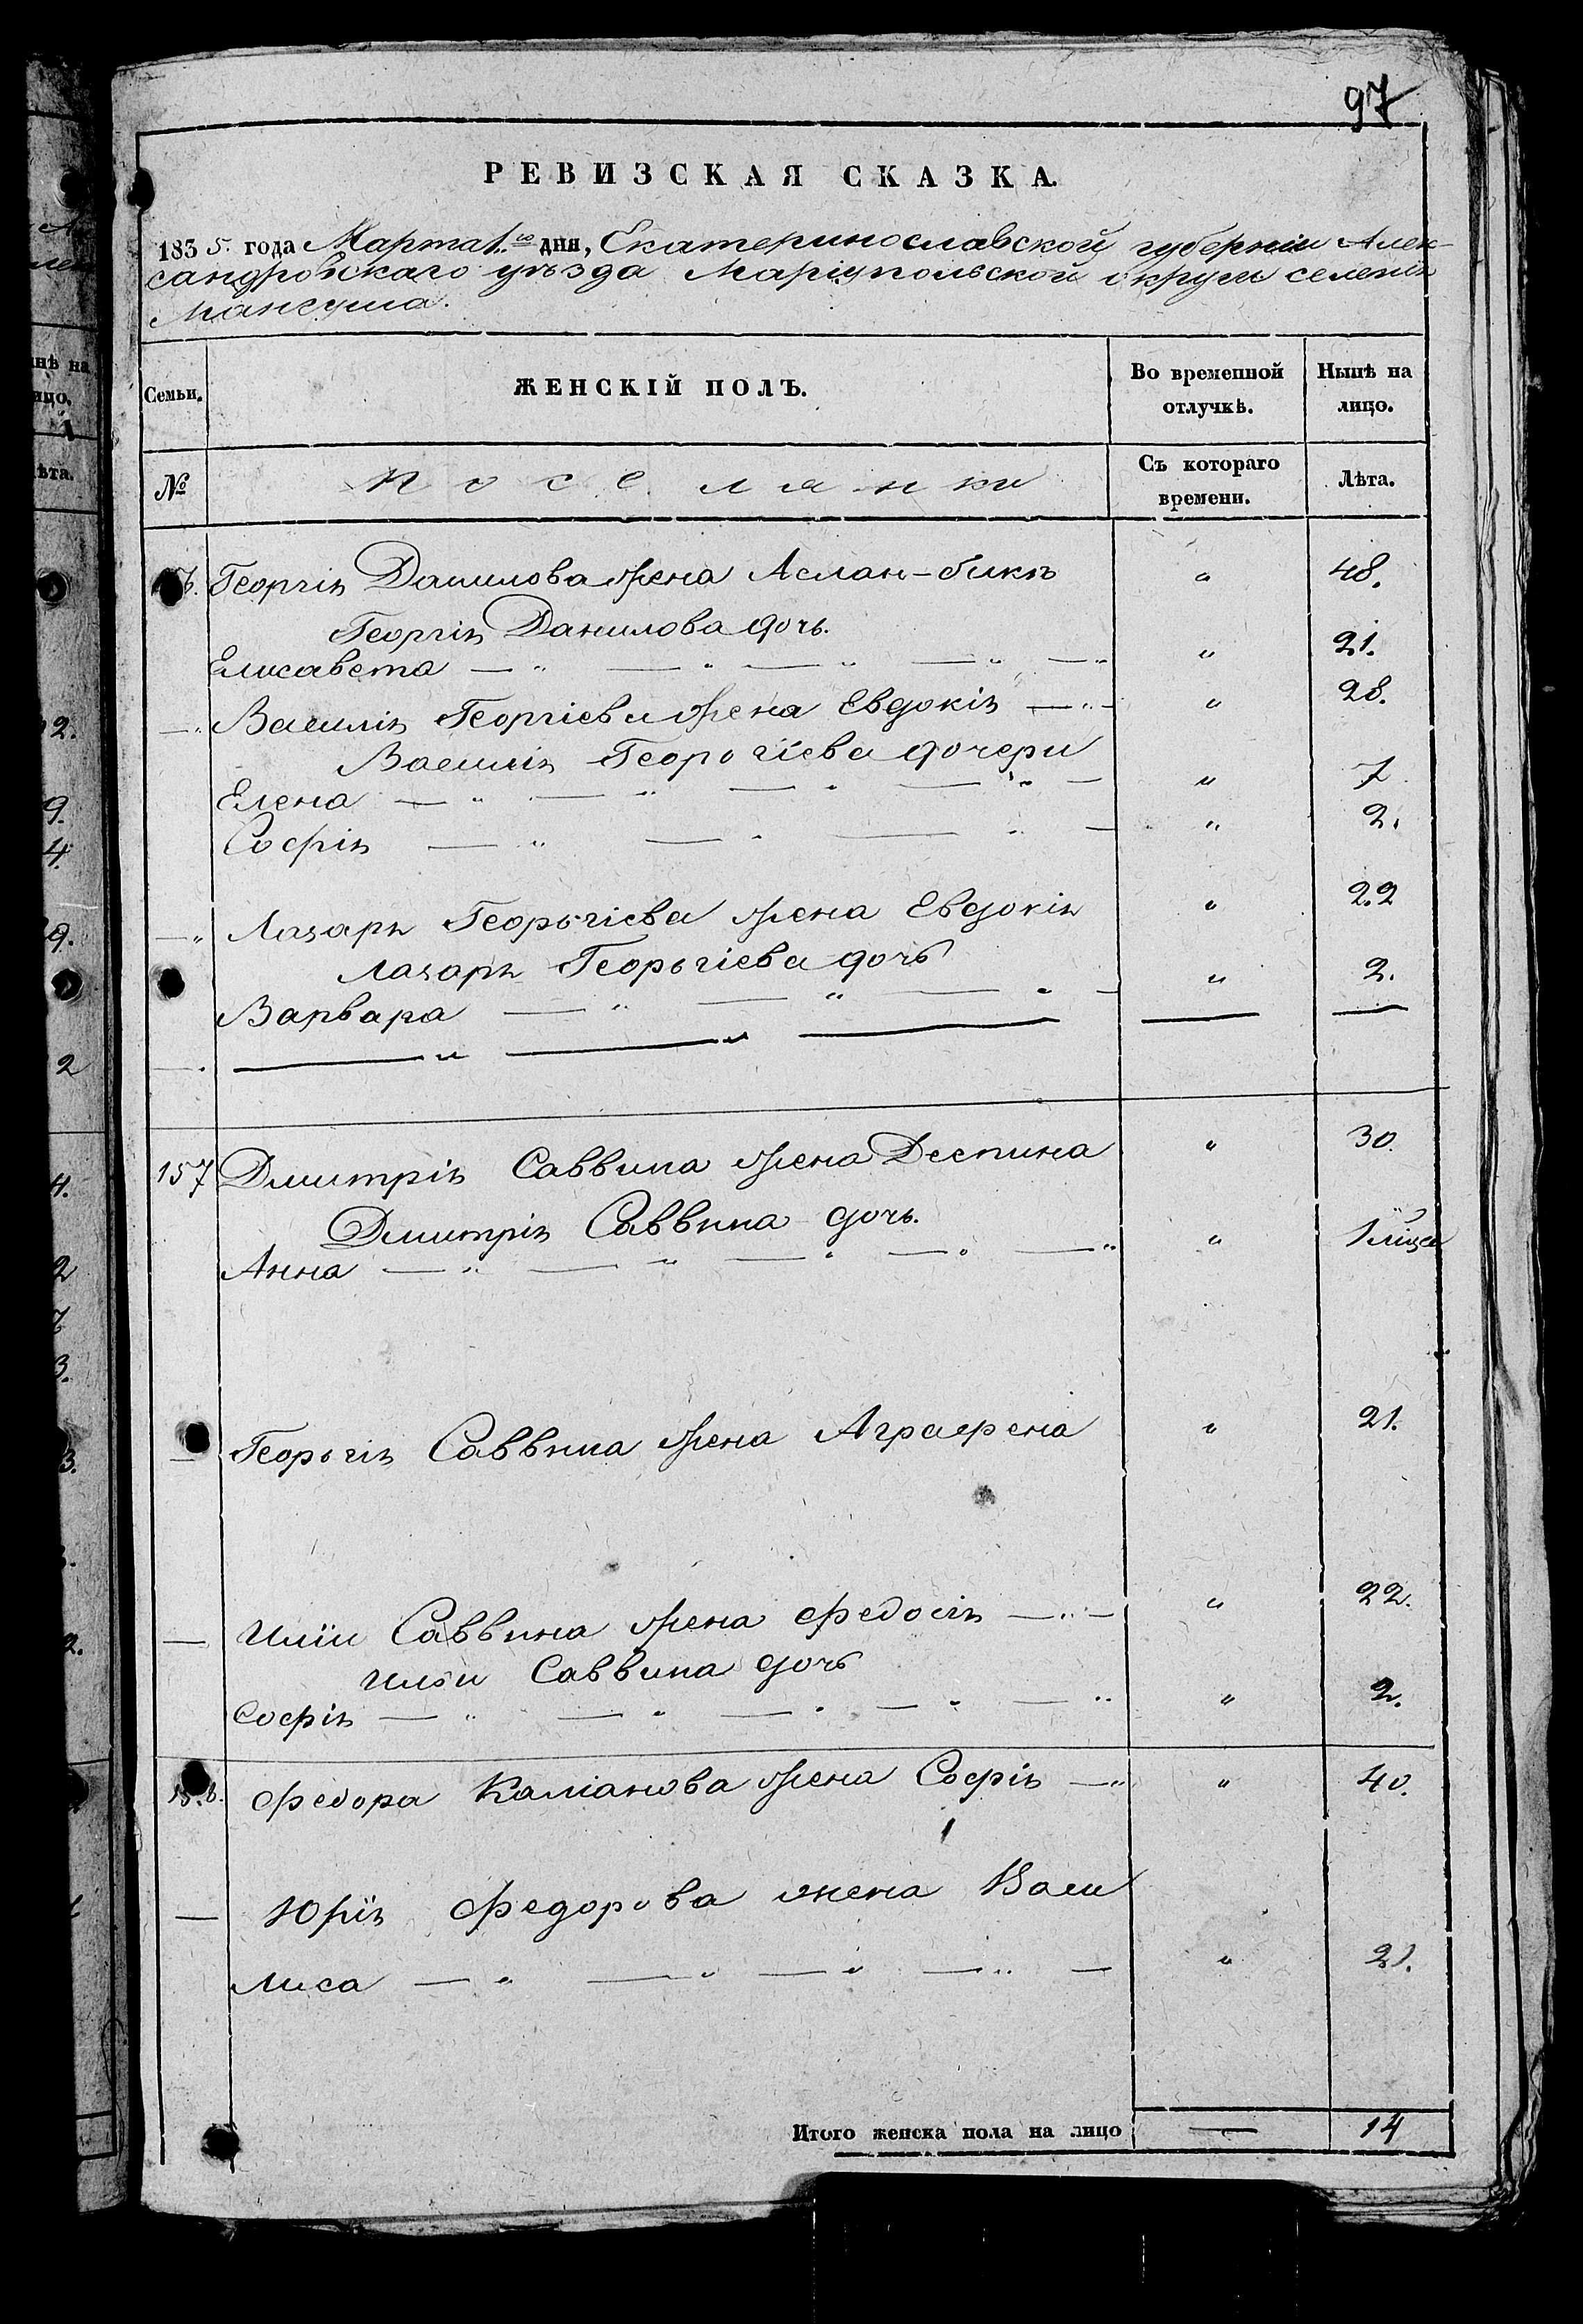 97
РЕВИЗСКАЯ СКАЗКА.
1835. года Марта 1.го дня, Екатеринославской губерніи Алек-
сандровскаго уѣзда Маріупольской округи селенія
Мангуша.
Семьи. ЖЕНСКІЙ ПОЛЪ. Во временной отлучкѣ. Нынѣ на лицо.
№ Поселянки Съ котораго времени. Лѣта.
Георгія Данилова жена Аслан-бика " 48.
Георгія Данилова дочь.
Елисавета — " — " — " — " — " " 21.
— " Василія Георгіева жена Евдокія — " — " 28.
Василія Георгіева дочери
Елена — " — " — " — " — " 7
Софія — " — " — " — " 2.
— " Лазаря Георьгіева жена Евдокія " 22
Лазаря Георьгіева дочь
Варвара — " — " — " — " 2.
157 Дмитрія Саввина жена Деспина " 30.
Дмитрія Саввина дочь.
Анна — " — " — " — " — " "
— Георьгія Саввина жена Аграфена " 21.
— Иліи Саввина жена Федосія — " — " 22.
Ильи Саввина дочь
Софія — " — " — " — " — " " 2.
158. Федора Каліанова жена Софія — " " 40.
— Юрія Федорова жена Васи
лиса — " — " — " — " — " 21.
Итого женска пола на лицо — 14